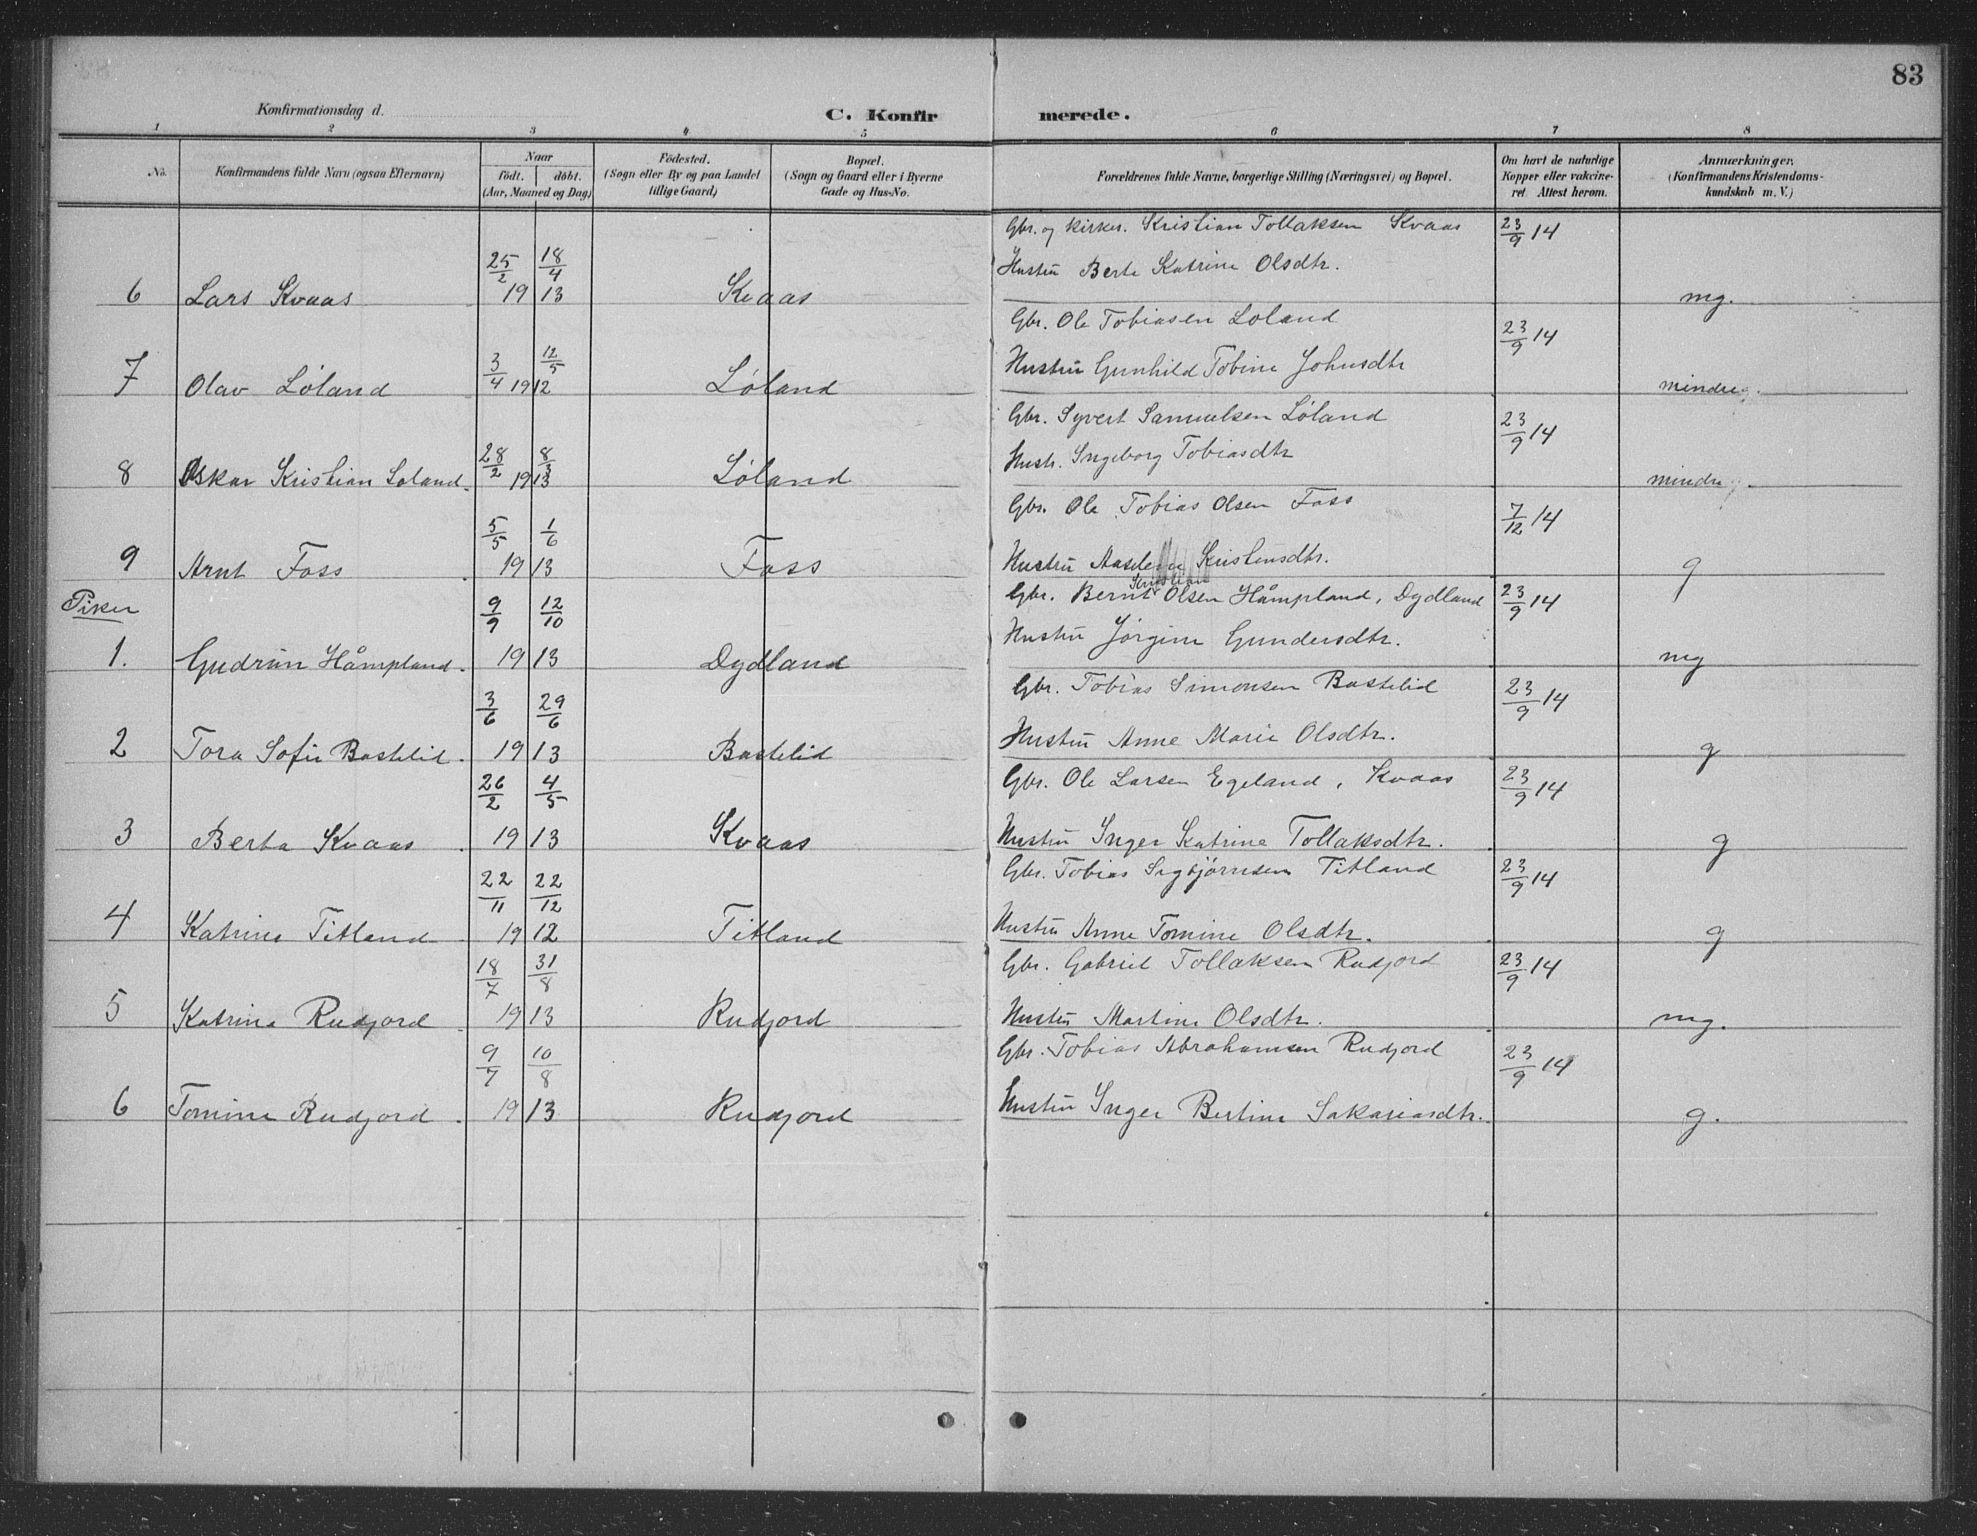 83
Konfirmationsdag d. C. Konfirmerede.
1 2 3 4 5 6 7 8
No. Konfirmandens fulde Navn (ogsaa Efternavn) Naar født. døbt. (Aar, Maaned og Dag) Fødested. (Sogn eller By og paa Landet tillige Gaard) Bopæl. (Sogn og Gaard eller i Byerne Gade og Hus-No. Forældrenes fulde Navne, borgerlige Stilling (Næringsvei) og Bopæl. Om havt de naturlige Kopper eller vakcineret. Attest herom. Anmærkninger. (Konfirmandens Kristendomskundskab m. V.)
Gbr. og kirkes. Kristian Tollaksen Kvaas 23/9 14
25/2 18/4 Hustru Berte Katrine Olsdtr.
6 Lars Kvaas 19 13 Kvaas mg.
Gbr. Ole Tobiasen Løland 23/9 14
3/4 12/5 Hustru Gunhild Tobine Johnsdtr
7 Olav Løland 19 12 Løland mindre g.
Gbr. Syvert Samuelsen Løland 23/9 14
28/2 8/3 Hustr. Ingeborg Tobiasdtr
8 Oskar Kristian Løland. 19 13 Løland mindre g.
Gbr. Ole Tobias Olsen Foss 7/12 14
5/5 1/6
9 Arnt Foss 19 13 Foss Hustru Kristensdtr. g
Piker
9/9 12/10 Gbr. Bernt Kristian Olsen Håmpland, Dydland 23/9 14
Hustru Jørgine Gundersdtr.
1. Gudrun Håmpland. 19 13 Dydland mg
3/6 29/6 Gbr. Tobias Simonsen Bastelid 23/9 14
Hustru Anne Marie Olsdtr.
2 Tora Sofie Bastelid. 19 13 Bastelid g
26/2 4/5 Gbr. Ole Larsen Egeland, Kvaas 23/9 14
3 Berta Kvaas 19 13 Kvaas Hustru Inger Katrine Tollaksdtr. g
22/11 22/12 Gbr. Tobias Sigbjørnsen Titland 23/9 14
4 Katrine Titland 19 12 Titland Hustru Anne Tomine Olsdtr. g
18/7 31/8 Gbr. Gabriel Tollaksen Rudjord 23/9 14
5 Katrine Rudjord 19 13 Rudjord Hustru Martine Olsdtr. mg.
9/7 10/8 Gbr. Tobias Abrahamsen Rudjord 23/9 14
6 Tomine Rudjord. 19 13 Rudjord Hustru Inger Bertine Sakariasdtr. g.